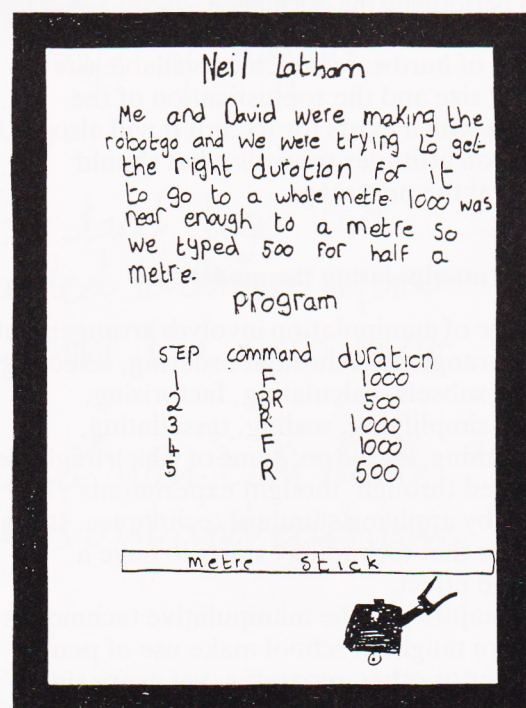 Neil Latham
Me and David were making the
robotgo and we were trying to get
the right duration for it
to go to a whole metre. 1000 was
near enough to a metre so
we typed 500 for half a
metre.
program
STEP command duration
1 F 1000
2 BR 500
3 R 1000
4 F 1000
5 R 500
metre stick